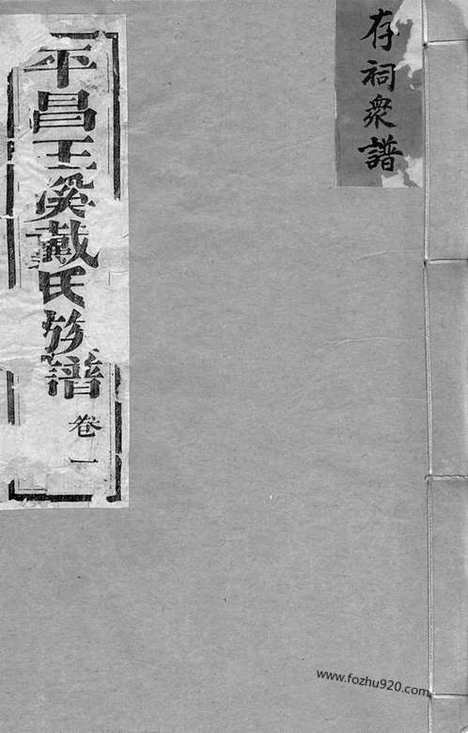 存祠衆譜
平昌王溪戴氏族譜
卷一
www.fozhu920.com